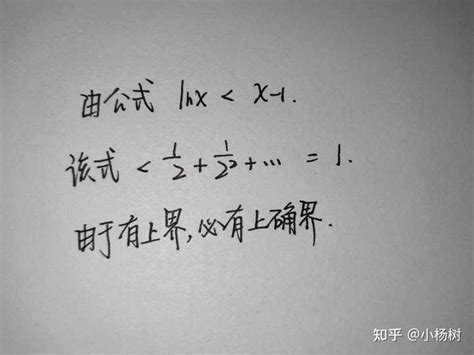 由公式 lnx < x-1.
该式 < 1/2 + 1/2² + … = 1.
由于有上界,必有上确界.
知乎 @小杨树